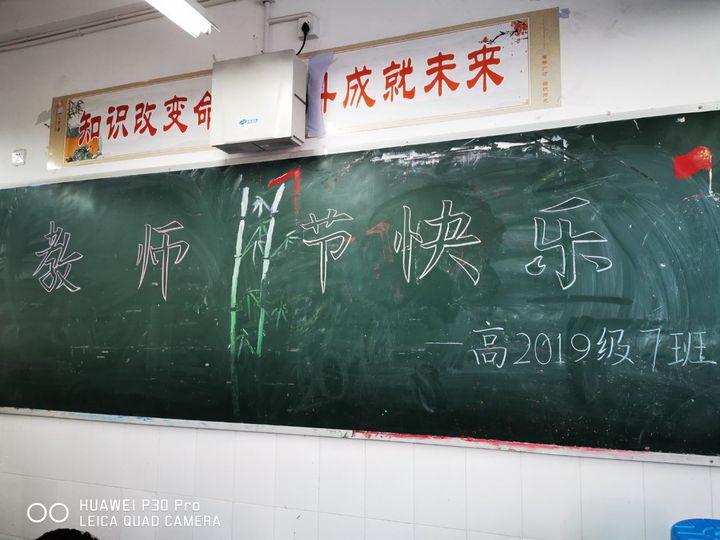 知识改变命
成就未来
教师节快乐
一高2019级7班
HUAWEI P30 Pro
LEICA QUAD CAMERA